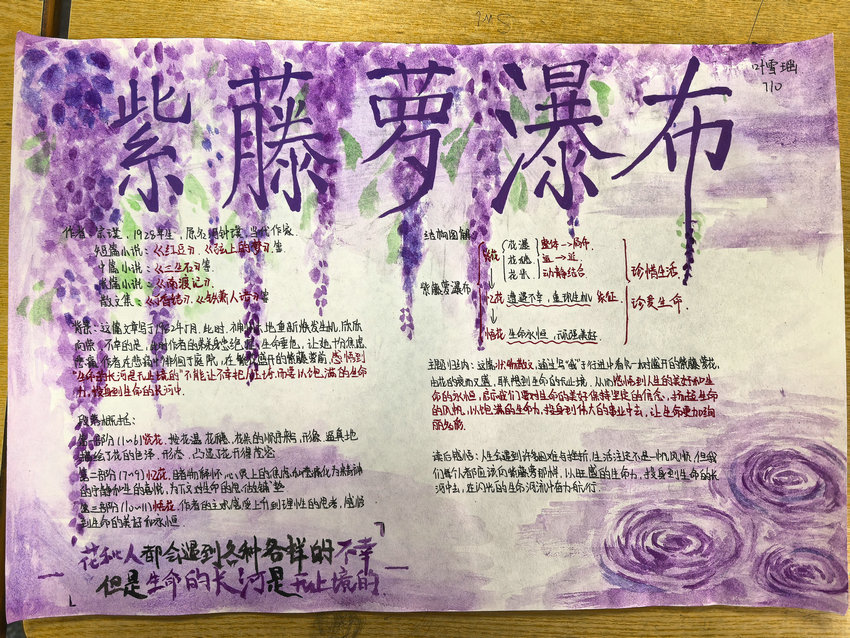 紫藤萝瀑布
叶雪瑶
710
作者：宗璞，1928年生，原名冯钟璞，当代作家
短篇小说：《红豆》，《弦上的梦》等
中篇小说：《三生石》等
长篇小说：《南渡记》
散文集：《丁香结》《铁箫人语》等
背景：这篇文章写于1982年5月，此时，神州大地重新焕发生机，欣欣
向荣，不幸的是，此时作者的弟弟身患绝症，生命垂危，让她十分焦虑
悲痛，作者在悲痛中徘徊于庭院，在繁茂盛开的紫藤萝前，感悟到
"生命的长河是无止境的"不能让不幸把人压垮，而要以饱满的生命
力，投身到生命的长河中。
段落概括：
第一部分(1~6)赏花：按花瀑、花穗、花朵的顺序，形象、逼真地
描绘了花的色泽、形态，凸显花开得茂密
第二部分(7~9)忆花：
的宁静和生的喜悦，为下文对生命的思考做铺垫
第三部分(10~11)悟花：作者的主观感受上升到理性的思考，感悟
到生命的美好和永恒
花和人都会遇到各种各样的不幸
但是生命的长河是无止境的
结构图解
紫藤萝瀑布
赏花
花瀑
花穗
花朵
整体→局部
远→近
动静结合
忆花 遭遇不幸，重现生机 象征
悟花 生命永恒，
珍惜生活
珍爱生命
主题归纳：这篇状物散文，通过写"我"于行进中看见一树盛开的紫藤萝花，
由花的衰而又盛，联想到生命的无止境，从而感悟到人生的美好和生
命的永恒，启示我们要对生命的美好保持坚定的信念，扬起生命
的风帆，以饱满的生命力，投身到伟大的事业中去，让生命更加绚
丽
读后感悟：人会遇到许多困难与挫折，生活注定不是一帆风顺，但我
们每个人都应该向紫藤萝那样，以旺盛的生命力，投身到生命的长
河中去，在闪光的生命河流中奋力前行。